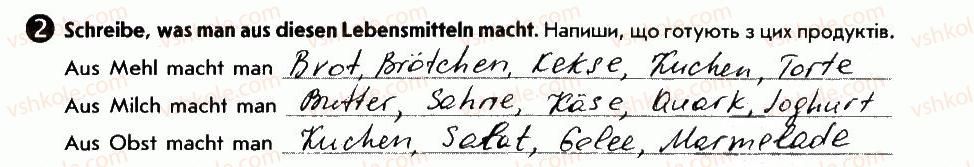 2 Schreibe, was man aus diesen Lebensmitteln macht. Напиши, що готують з цих продуктів.
Aus Mehl macht man Brot, Brötchen, Kekse, Kuchen, Torte
Aus Milch macht man Butter, Sahne, Käse, Quark, Joghurt
Aus Obst macht man Kuchen, Salat, Gelee, Marmelade